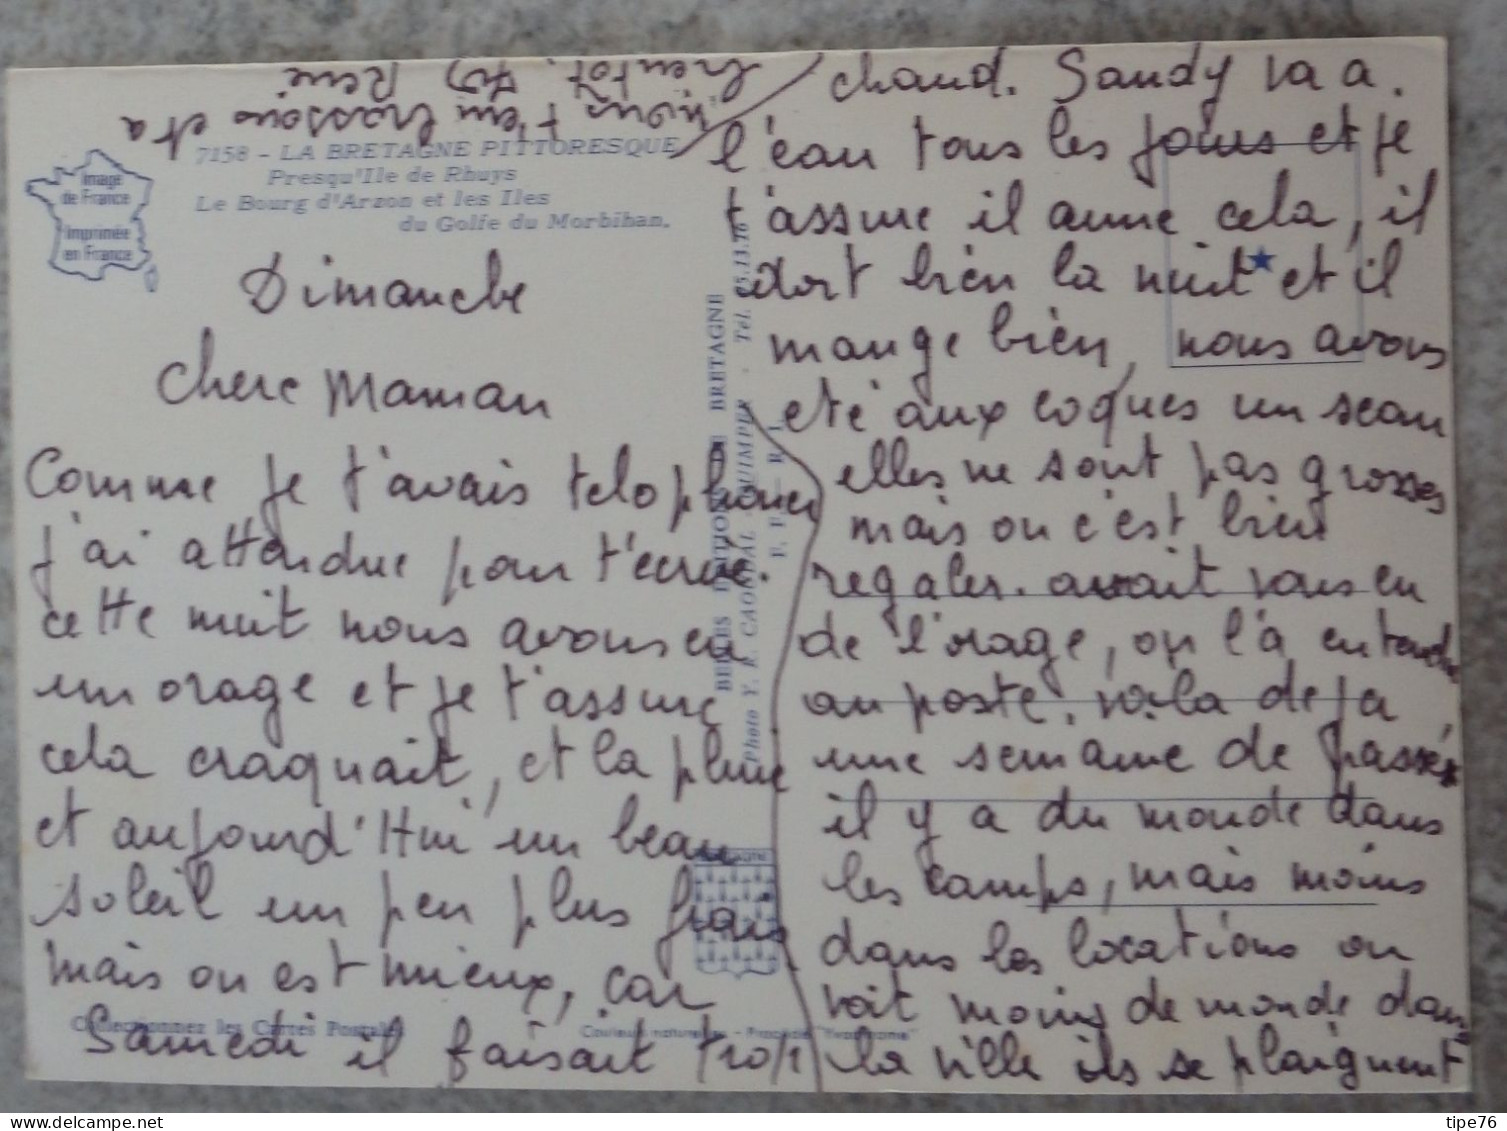 7158 - LA BRETAGNE PITTORESQUE
Presqu'Ile de Rhuys
Le Bourg d'Arzon et les Iles
du Golfe du Morbihan.
Image
de France
Imprimée
en France
Dimanche
Chere Maman
Comme je t'avais telephoner
j'ai attendue pour t'ecrire.
cette nuit nous avons eu
un orage et je t'assure
cela craquait, et la pluie
et aujourd'Hui un beau
soleil un peu plus frais
mais on est mieux, car
Samedi il faisait trop
Collectionnez les Cartes Postales
Couleurs naturelles - Procédé "Yvachrome"
BELLES EDITIONS DE BRETAGNE
Photo Y. R. CAOUDAL QUIMPER Tél. 95.13.76
chaud. Sandy va a.
l'eau tous les jours et je
t'assure il aime cela, il
dort bien la nuit et il
mange bien, nous avons
eté aux coques un seau
elles ne sont pas grosses
mais on c'est bien
regaler. avait vous eu
de l'orage, on l'a entendu
au poste. voila deja
une semaine de passée
il y a du monde dans
les camps, mais moins
dans les locations on
voit moins de monde dans
la ville ils se plaignent
nous t'embrassons et a
bientot. René
tipe76